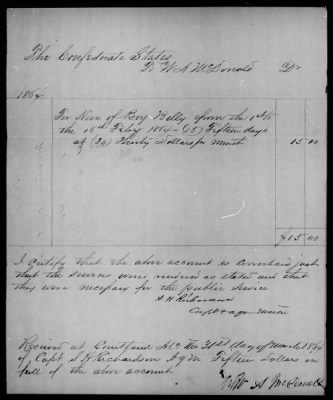 The Confederate States
To W A McDonald Dr
1864
For Hire of Boy Billy from the 1st to
the 15th Feby 1864 - (15) Fifteen days
at (30) Thirty Dollars per month 15 00
$15 00
I certify that the above account is correct and just
that the services were rendered as stated and that
they were necessary for the public service
S H Richardson
Capt & aqm
Received at Courtland Ala the 31st day of March 1864
of Capt S H Richardson A Q M Fifteen Dollars in
full of the above account
W A McDonald